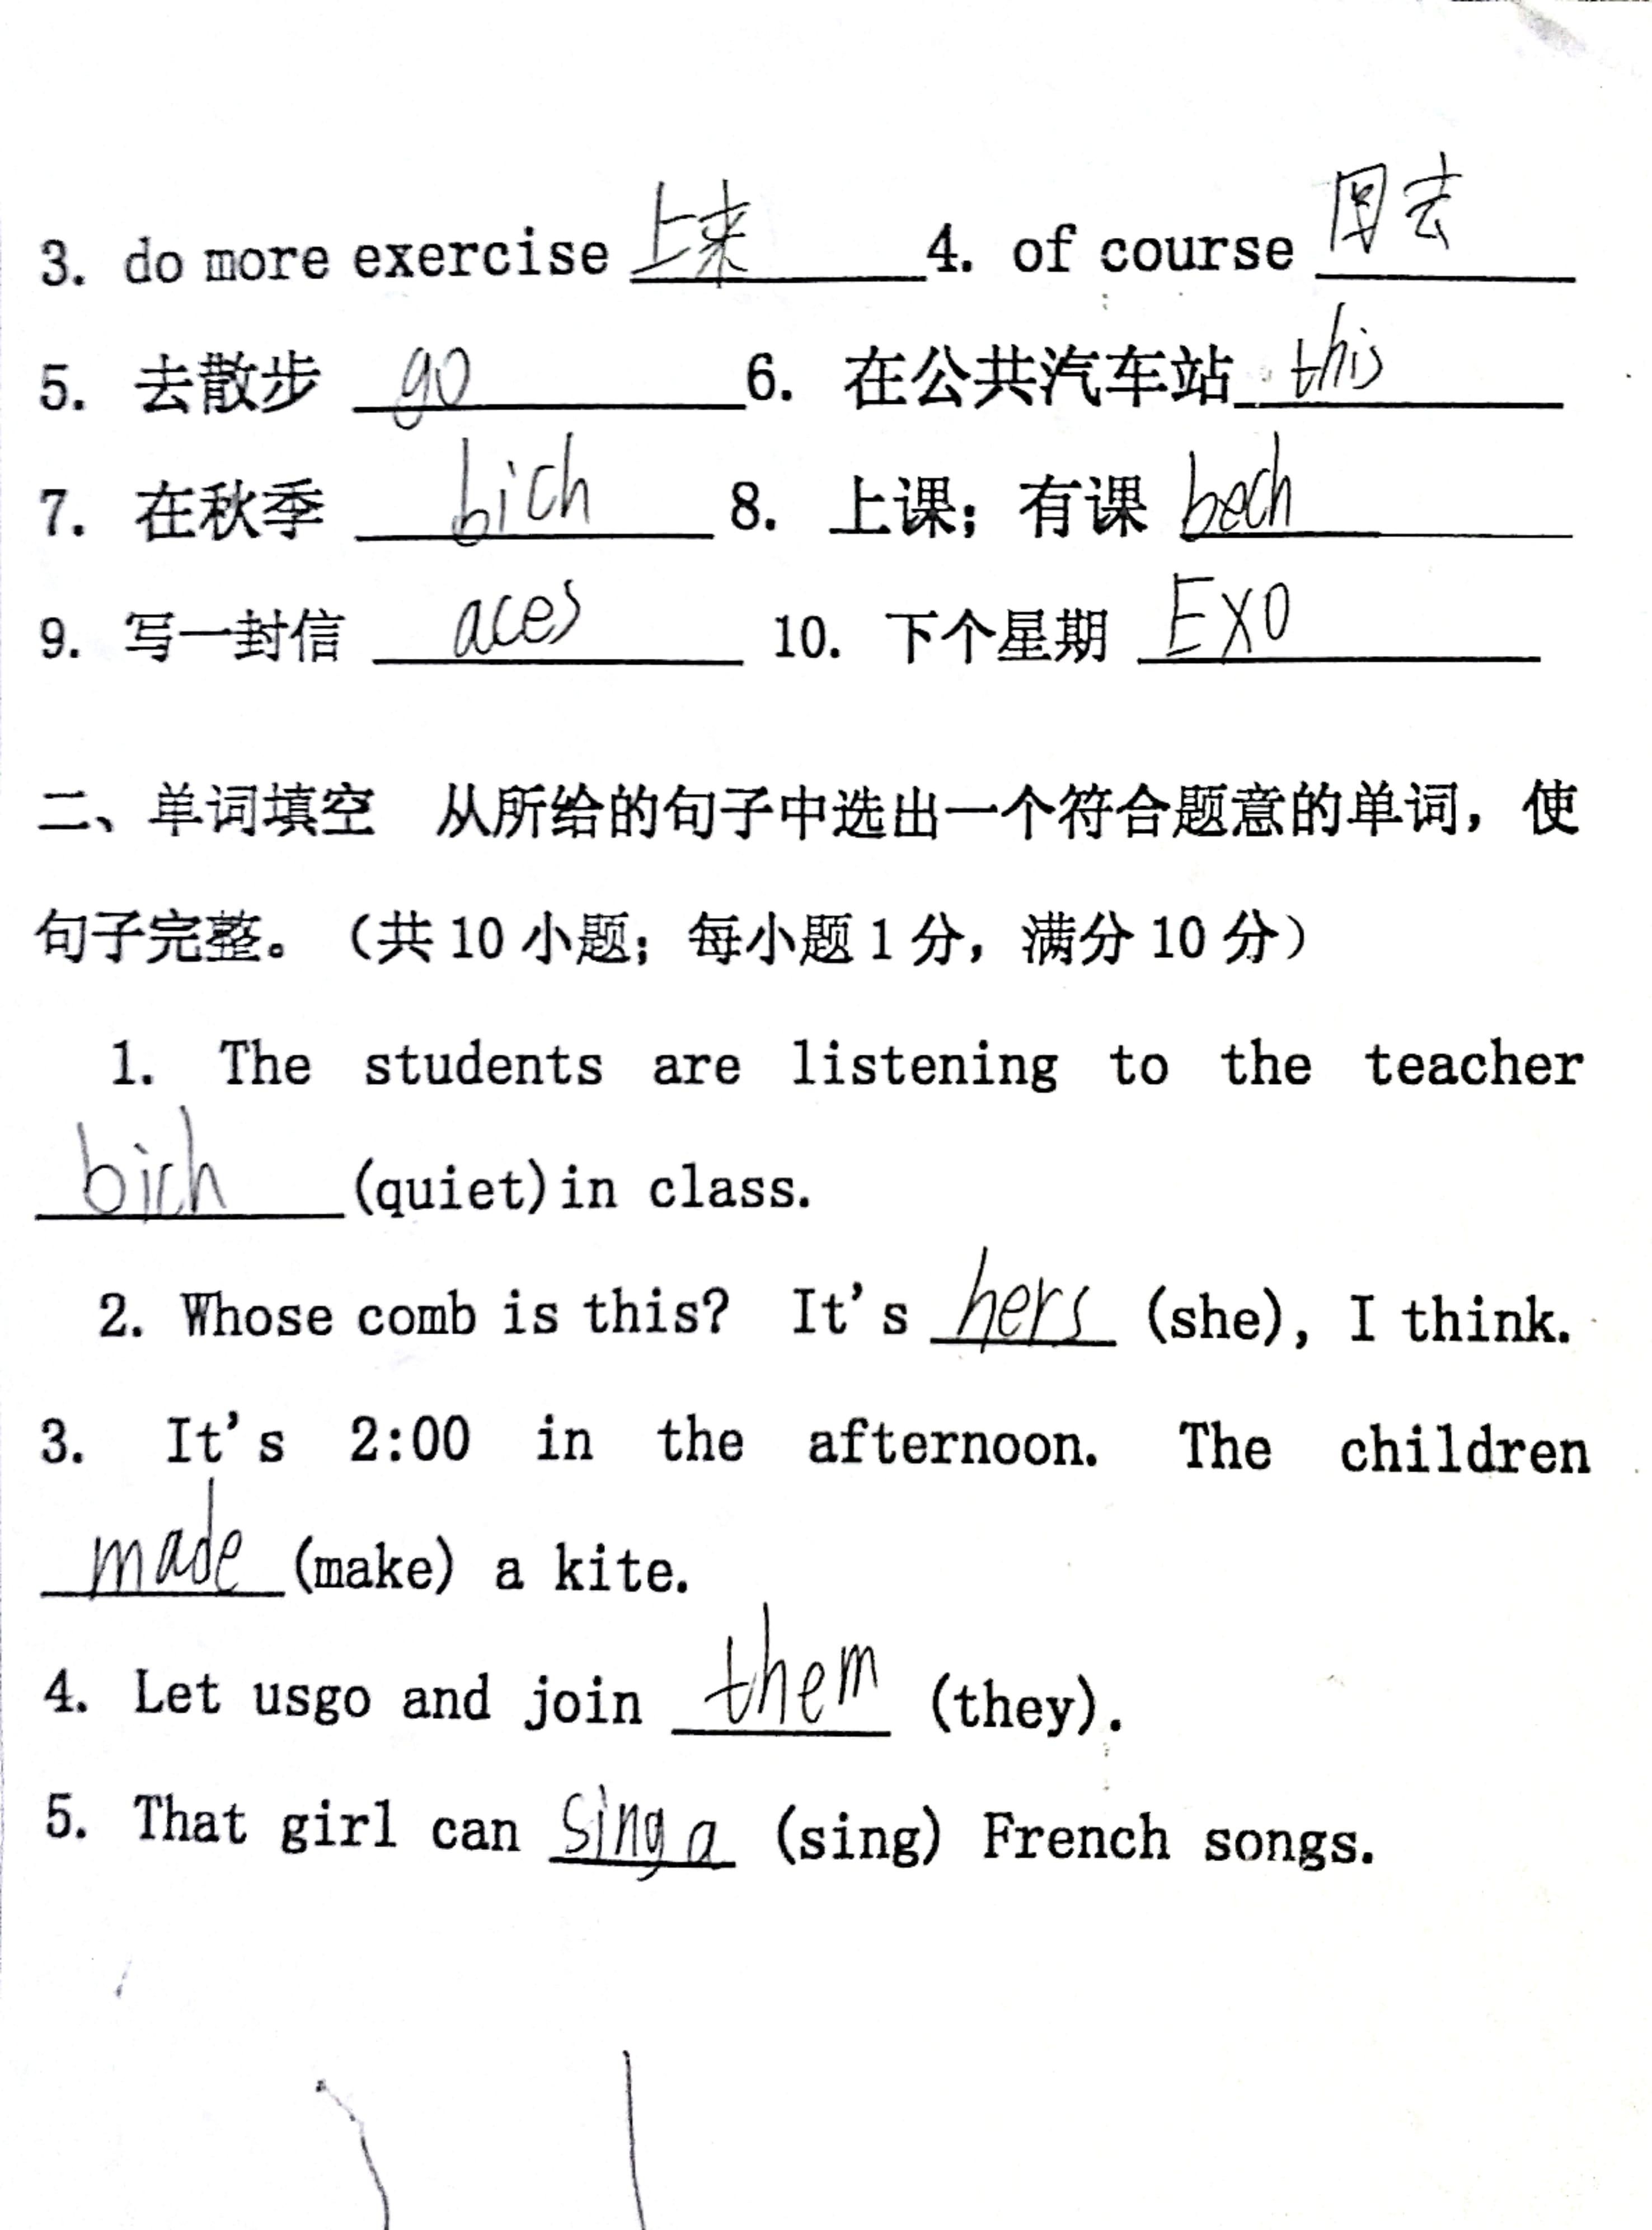 3. do more exercise 上来 4. of course 回去
5. 去散步 go 6. 在公共汽车站 this
7. 在秋季 bich 8. 上课；有课 bech
9. 写一封信 aces 10. 下个星期 EXO
二、单词填空 从所给的句子中选出一个符合题意的单词，使
句子完整。（共 10 小题；每小题 1 分，满分 10 分）
1. The students are listening to the teacher
bich (quiet) in class.
2. Whose comb is this? It's hers (she), I think.
3. It's 2:00 in the afternoon. The children
made (make) a kite.
4. Let usgo and join them (they).
5. That girl can sing a (sing) French songs.